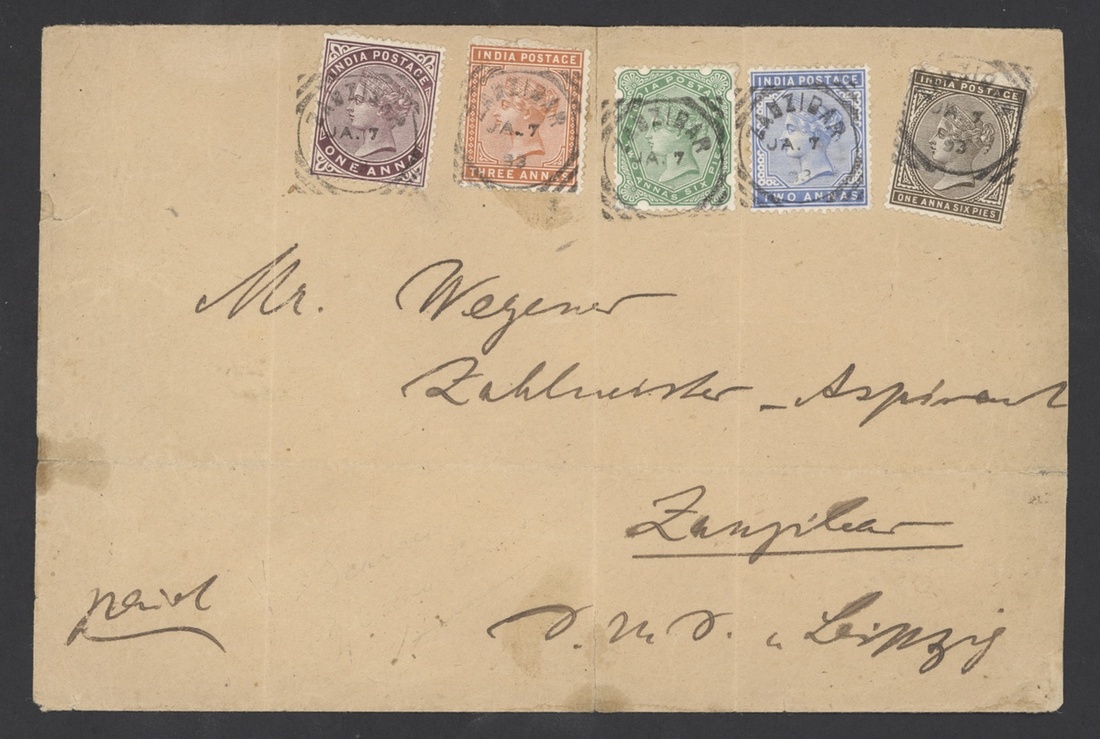 INDIA POSTAGE
ONE ANNA
INDIA POSTAGE
THREE ANNAS
INDIA POSTAGE
ANNAS SIX PIES
INDIA POSTAGE
TWO ANNAS
INDIA POSTAGE
ONE ANNA SIX PIES
ZANZIBAR
JA. 7
ZANZIBAR
JA. 7
93
ZANZIBAR
JA. 7
ZANZIBAR
JA. 7
93
JA. 7
93
Mr. Wegener
Zahlmeister - Aspirant
Zanzibar
paid
S. M. S. "Leipzig